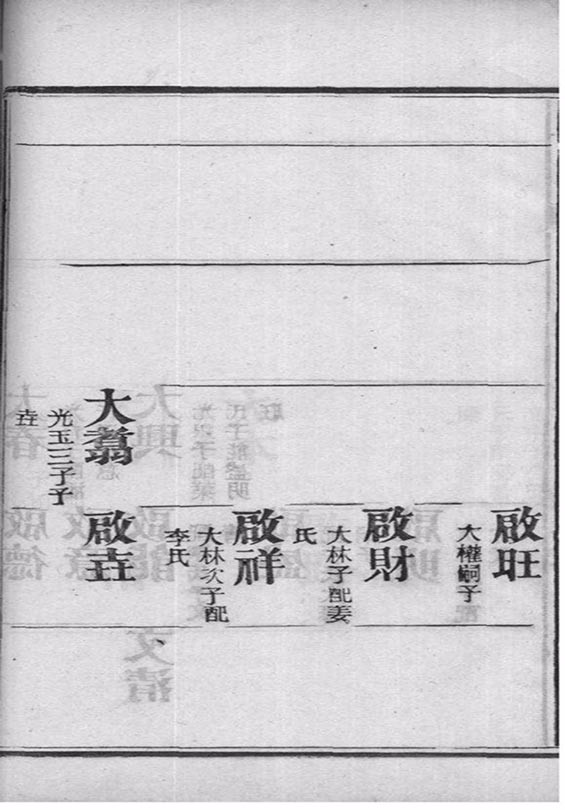 啟旺
大權嗣子
啟財
大林子配姜
氏
啟祥
大林次子配
李氏
大翥
光玉三子子
垚
啟垚